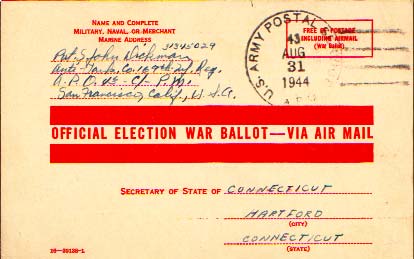 NAME AND COMPLETE
MILITARY, NAVAL, OR MERCHANT
MARINE ADDRESS
Pvt. S. John Dickman 31345029
Anti-Tank Co. 169th Inf. Reg.
A.P.O. 43 - C/- P.M.
San Francisco, Calif., U.S.A.
U.S. ARMY POSTAL
43
AUG
31
1944
FREE OF POSTAGE
INCLUDING AIRMAIL
(War Ballot)
OFFICIAL ELECTION WAR BALLOT—VIA AIR MAIL
SECRETARY OF STATE OF CONNECTICUT
HARTFORD
(CITY)
CONNECTICUT
(STATE)
16—39138-1